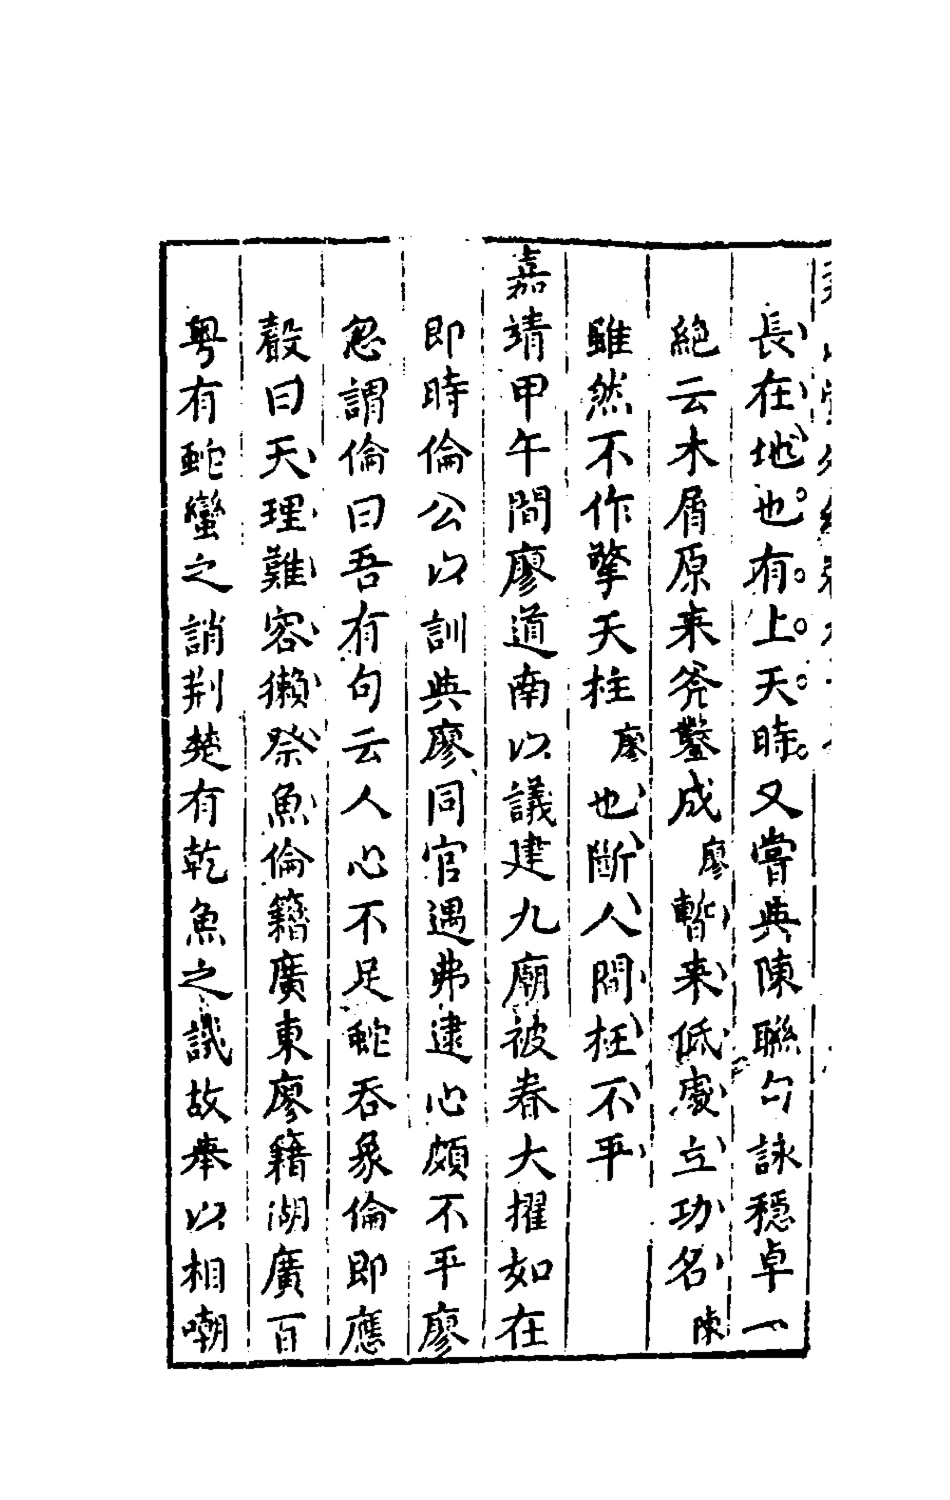 長在地也有上天時又嘗與陳聯句詠穩卓一
絕云木屑原来斧鑿成廖暫来低處立功名陳
雖然不作擎天柱廖也斷人間枉不平
嘉靖甲午間廖道南以議建九廟被春大擢如在
即時倫公以訓典廖同官遇弗逮心頗不平廖
忽謂倫曰吾有句云人心不足蛇吞象倫即應
聲曰天理難容獺祭魚倫籍廣東廖籍湖廣百
粤有蛇蠻之誚荆楚有乾魚之譏故舉以相嘲